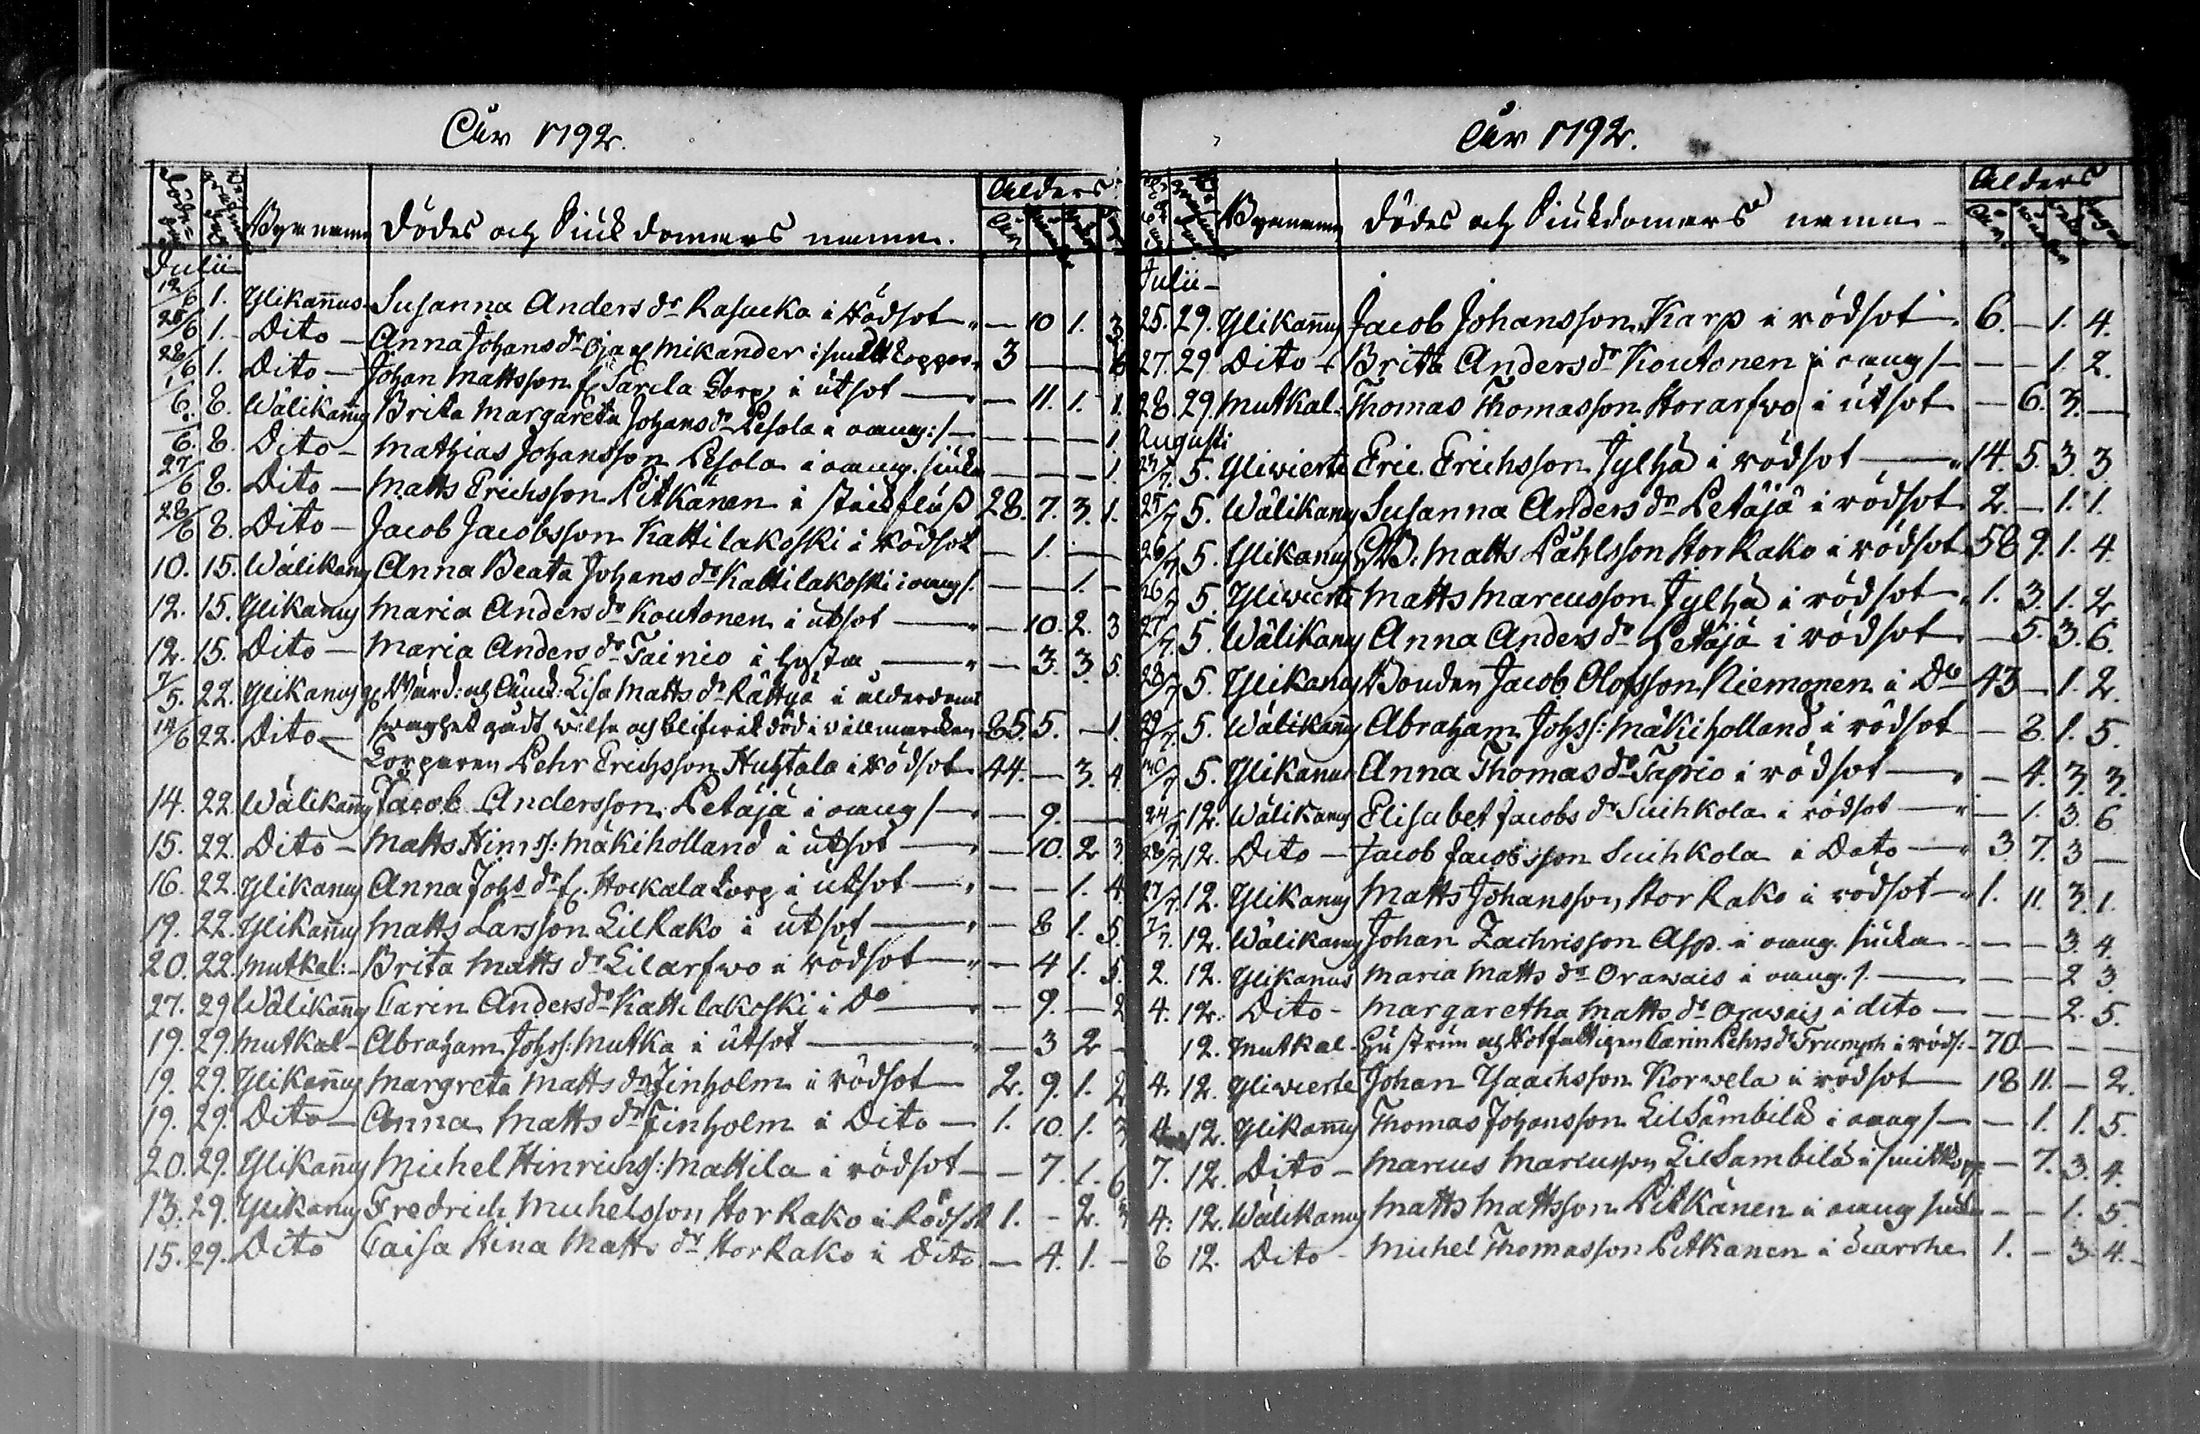 År 1792.
Döde-dag Begrafnings dag Byanamn Dödes och Siukdomars namn. Ålders
År Månader Dagar
Julii
12/6 1. Ylikannus Susanna Anders dr Rasacka i Rödsot — 10 1. 3
1. Dito — Anna Johans dr Oja Mikander i småkoppor 3 — — 6
28/6 1. Dito — Johan Mattsson Sarela Torp i utsot — 11. 1. 1.
1/6. 8. Wälikannus Brita Margareta Johans dr Pesola i aaug:/ — — — 1
6. 8. Dito — Mathias Johansson Pesola i aaug. siuka — — — 1.
27/6 8. Dito — Matts Erichsson Pitkänen i stickfluss 28. 7. 3. 1.
28/6 8. Dito — Jacob Jacobsson Kattilakoski i Rödsot — 1. — —
10. 15. Wälikannus Anna Beata Johans dr Kattilakoski i aaug/. — — 1. —
12. 15. Ylikannus Maria Anders dr Koutonen i utsot — 10. 2. 3
12. 15. Dito — Maria Anders dr Tainio i hosta — 3. 3. 5.
7/5. 22. Ylikannus Lisa Matts dr Rättyä i ålderdoms
gådt wilse och blifwit död i villmarcken 85. 5. — 1.
14/6 22. Dito — Torparen Pehr Erichsson Huhtala i Rödsot 44. — 3. 4.
14. 22 Wälikannus Jacob Andersson Petäjä i aaug/ — 9. — —
15. 22. Dito — Matts Hinrs: Mäkiholland i utsot — 10. 2 3.
16. 22. Ylikannus Anna Johs dr Hockala Torp i utsot — — 1. 4
19. 22. Ylikannus Matts Larsson LilRako i utsot — 8 1. 5.
20. 22. Mutkal: — Brita Matts dr Lilarfwo i Rödsot — 4 1. 5.
27. 29 Wälikannus Carin Anders dr Kattilakoski i Do — 9. — 2
19. 29. Mutkal — Abraham Johss: Mutka i utsot — 3 2 —
19. 29. Ylikannus Margreta Matts dr Finholm i rödsot 2. 9. 1. 2
19. 29. Dito — Anna Matts dr Finholm i Dito — 1. 10. 1. 3
20. 29. Ylikannus Michel Hinrichss: Mattila i rödsot — 7. 1. 6
13. 29. Ylikannus Fredrich Michelsson StorRako i Rödsot 1. — 2. 3
15. 29. Dito Caisa Stina Matts dr StorRako i Dito — 4. 1. —
År 1792.
Byanamn Dödes och Siukdomars namn — Ålders
År
Julii —
25. 29. Ylikannus Jacob Johansson Karp i rödsot — 6. — 1. 4.
27. 29 Dito — Brita Anders dr Koutonen i aaug/ — — — 1. 2.
28. 29. Mutkal. Thomas Thomasson Storarfwo i utsot — 6. 3. —
Augusti
23/7. 5. Yliwierte Eric Erichsson Jylhä i rödsot — 14. 5. 3. 3
25/7 5. Wälikannus Susanna Anders dr Petäjä i rödsot 2. — 1. 1.
26/7 5. Ylikannus Matts Påhlsson StorRako i rödsot 58 9. 1. 4.
26/7 5. Yliwierte Matts Marcusson Jylhä i rödsot 1. 3. 1. 2
27/7. 5. Wälikannus Anna Anders dr Petäjä i rödsot — 5. 3. 6.
28/7 5. Ylikannus Bonden Jacob Olofsson Niemonen i Do 43 — 1. 2.
29/7. 5. Wälikannus Abraham Johss: Mäkiholland i rödsot — 8. 1. 5.
30/7 5. Ylikannus Anna Thomas dr Tapio i rödsot — 4. 3. 3.
24/7 12. Wälikannus Elisabet Jacobs dr Suihkola i rödsot — 1. 3. 6
28/7. 12. Dito — Jacob Jacobsson Suihkola i Dato — 3. 7. 3 —
27/7. 12. Ylikannus Matts Johansson StorRako i rödsot — 1. 11. 3. 1.
7/7. 12. Wälikannus Johan Zachrisson Asp i aaug. siuka — — 3. 4.
2. 12. Ylikannus Maria Matts dr Orawais i aaug. /. — — — 2 3.
4. 12. Dito — Margaretha Matts dr Orawais i dito — — — 2. 5.
12. Mutkal — Hustrun och Rotfattigen Carin Pehrs dr Trumph i röds: 70 — — —
4. 12. Yliwierte Johan Ysaachsson Korwela i rödsot — 18 11. — 2.
4 12. Ylikannus Thomas Johansson LilSämbilä i aaug/ — — 1. 1. 5.
7. 12. Dito — Marcus Marcusson LilSämbilä i småkopp — 7. 3. 4.
4. 12. Wälikannus Matts Mattsson Pitkänen i aaug siuka — — 1. 5.
8 12. Dito — Michel Thomasson Pitkänen i Diarrhe 1. — 3. 4. —